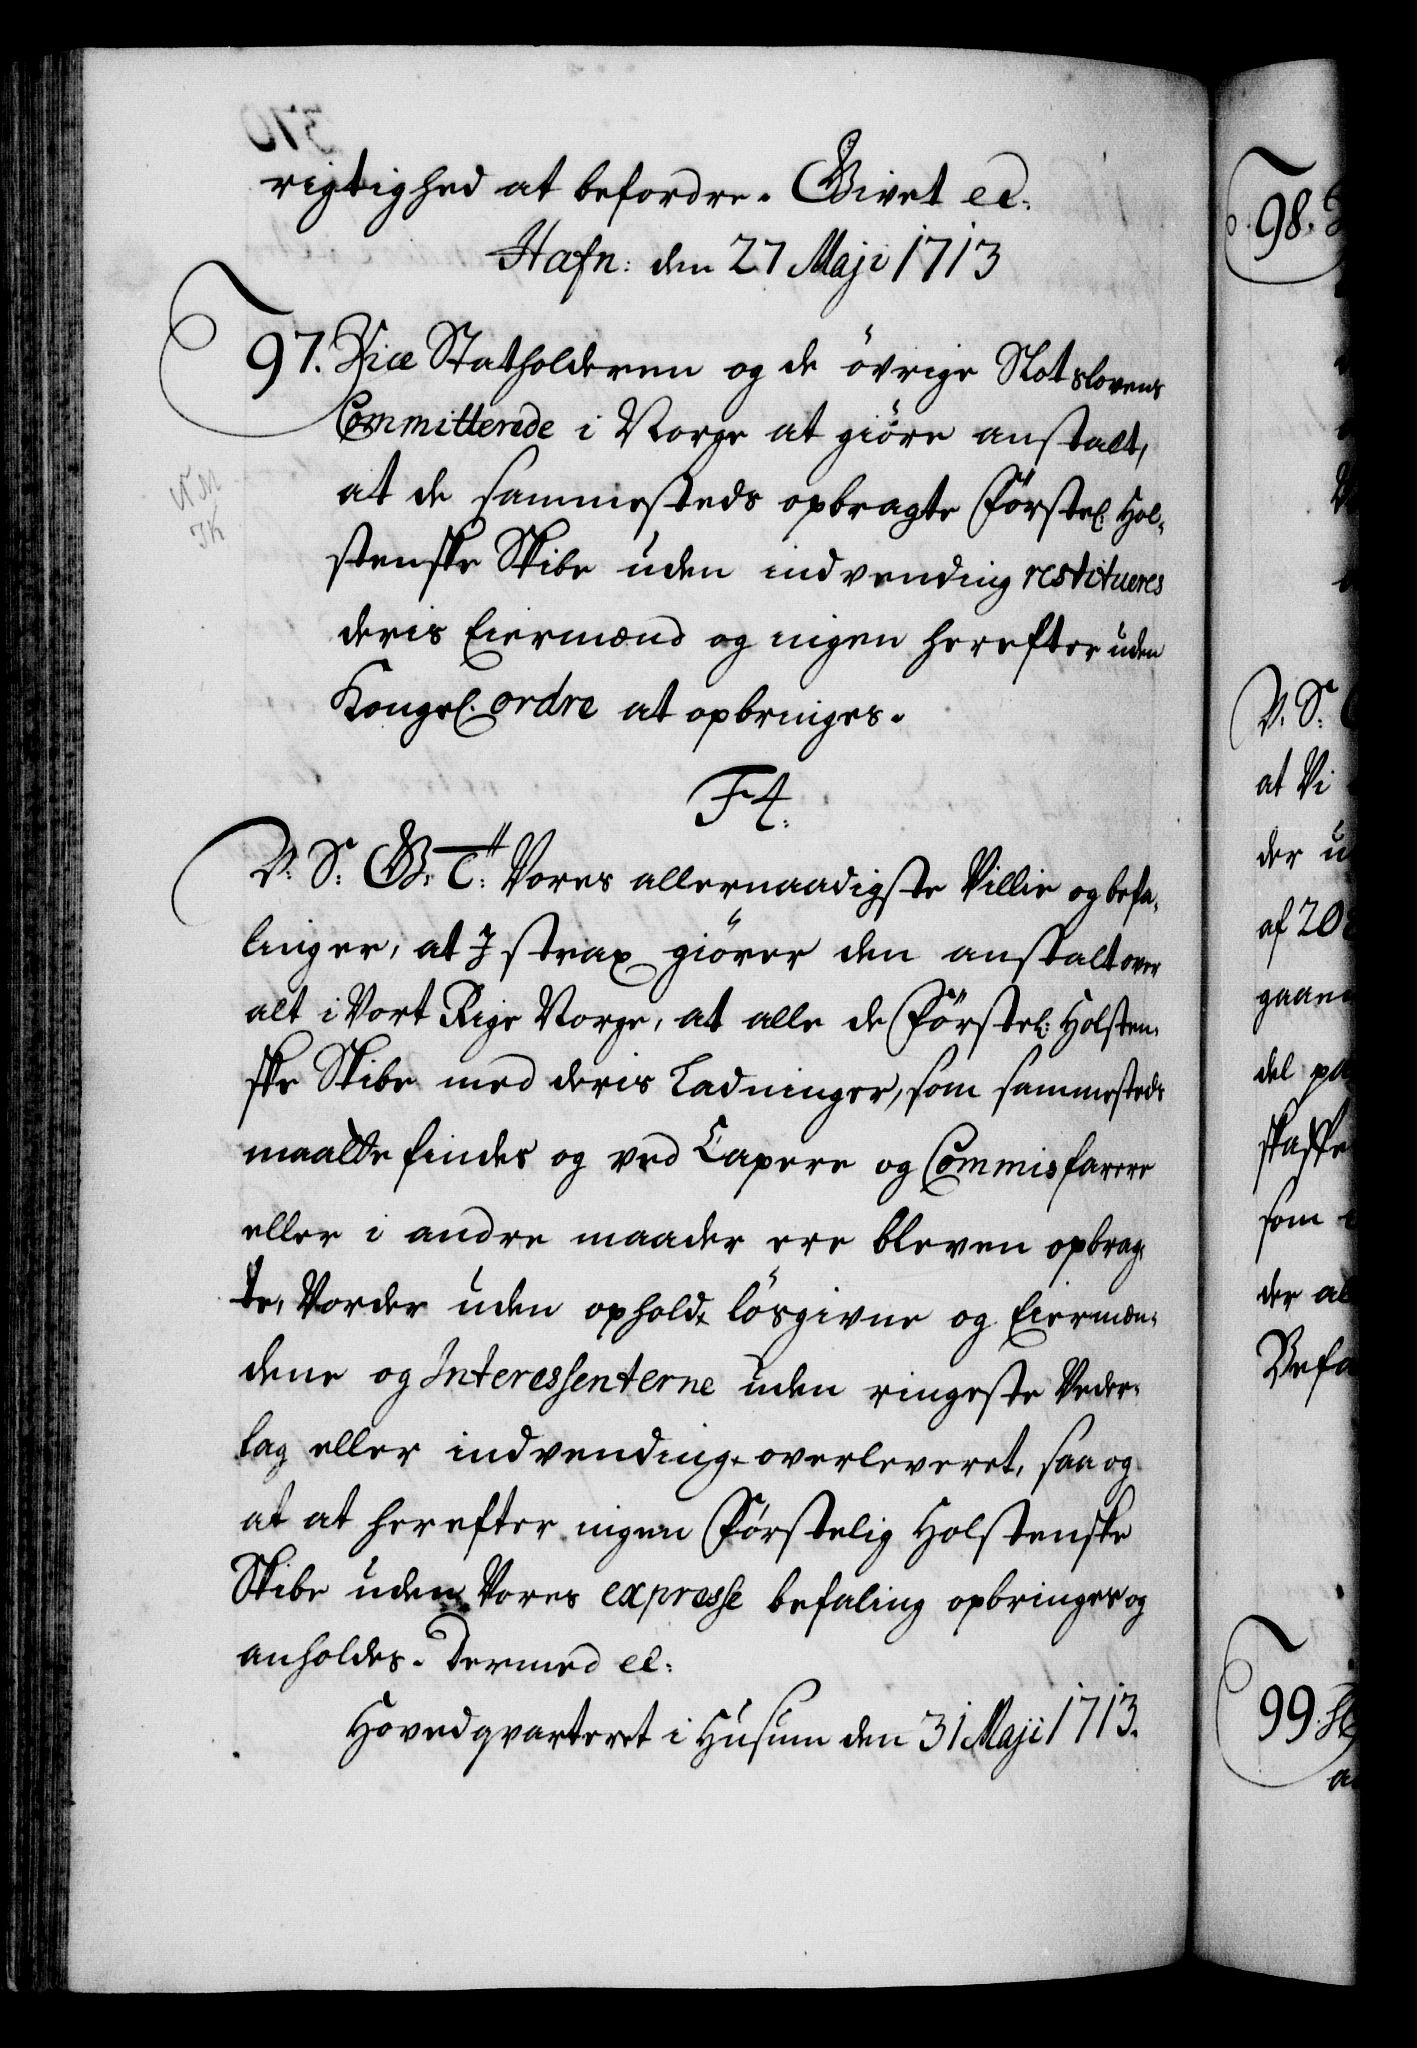 rigtighed at befordre. Givet etc:
Hafn: den 27 Maji 1713
97. Vice Statholderen og de övrige Slotslovens
Committerede i Norge at giöre anstalt,
at de sammesteds opbragte Förstel. Hol-
stenske Skibe uden indvending restitueres
deris Eiermænd og ingen herefter uden
Kongel. ordre at opbringes.
F4.
V. S. G. T. Vores allernaadigste Villie og befa-
linger, at I strax giörer den anstalt over
alt i Vort Rige Norge, at alle de Förstel: Holsten-
ske Skibe med deris Ladninger, som sammesteds
maatte findes og ved Capere og Commisfarere
eller i andre maader ere bleven opbrag-
te, Vorder uden ophold lösgivne og Eiermæn-
dene og Interessenterne uden ringeste Veder-
lag eller indvending overleveret, saa og
at at herefter ingen Förstelig Holstenske
Skibe uden Vores expresse befaling opbringes og
anholdes. Dermed etc:
Hovedqvarteret i Husum den 31 Maji 1713.
98.
V. S:
at Vi
der u
af 20
gaaen
del pa
skaffe
som
der al
Befa
99.